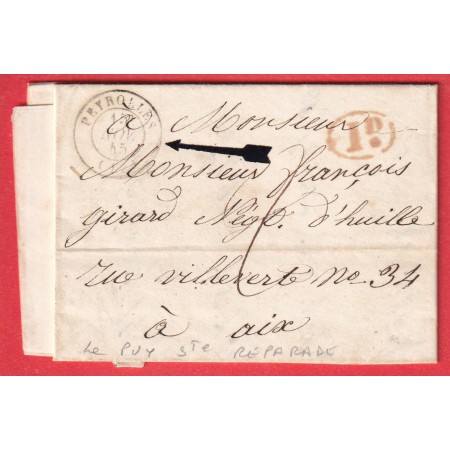 PEYROLLES
45
1D.
à Monsieur
Monsieur françois
girard Négt. d'huille
rue villevert no 34
à aix
Le PUY Ste REPARADE